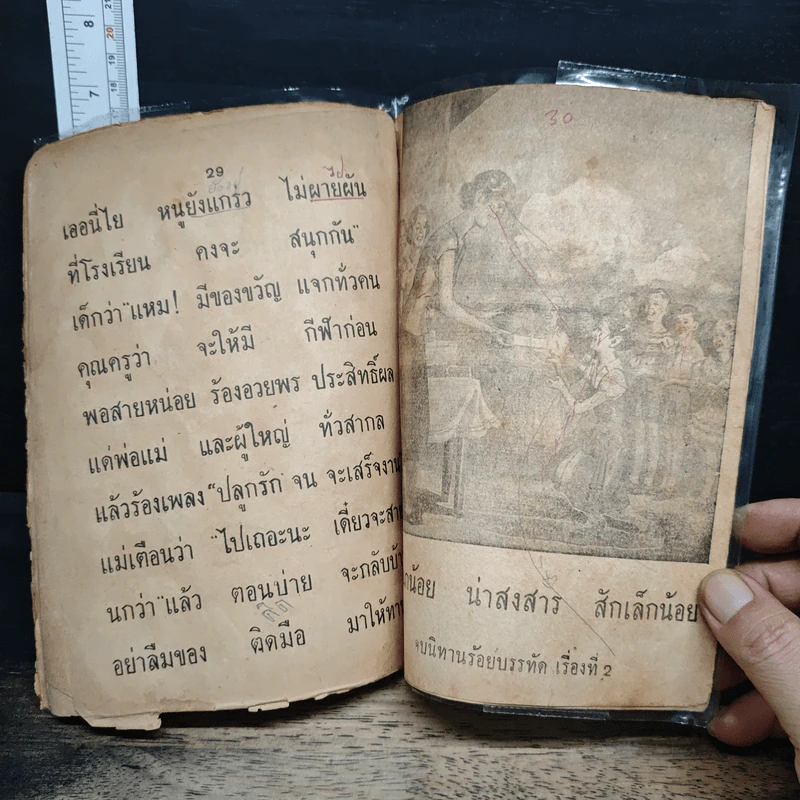 29
เออนี่ไย หนูยังแกร่ว ไม่ผายผัน
ที่โรงเรียน คงจะ สนุกกัน"
เด็กว่า"แหม! มีของขวัญ แจกทั่วคน
คุณครูว่า จะให้มี กีฬาก่อน
พอสายหน่อย ร้องอวยพร ประสิทธิ์ผล
แด่พ่อแม่ และผู้ใหญ่ ทั่วสากล
แล้วร้องเพลง"ปลูกรัก" จน จะเสร็จงาน
แม่เตือนว่า "ไปเถอะนะ เดี๋ยวจะสาย
นกว่า"แล้ว ตอนบ่าย จะกลับบ้าน
อย่าลืมของ ติดมือ มาให้ทาน
ติด
30
น้อย น่าสงสาร สักเล็กน้อย
จบนิทานร้อยบรรทัด เรื่องที่ 2
7
8
18
19
20
21